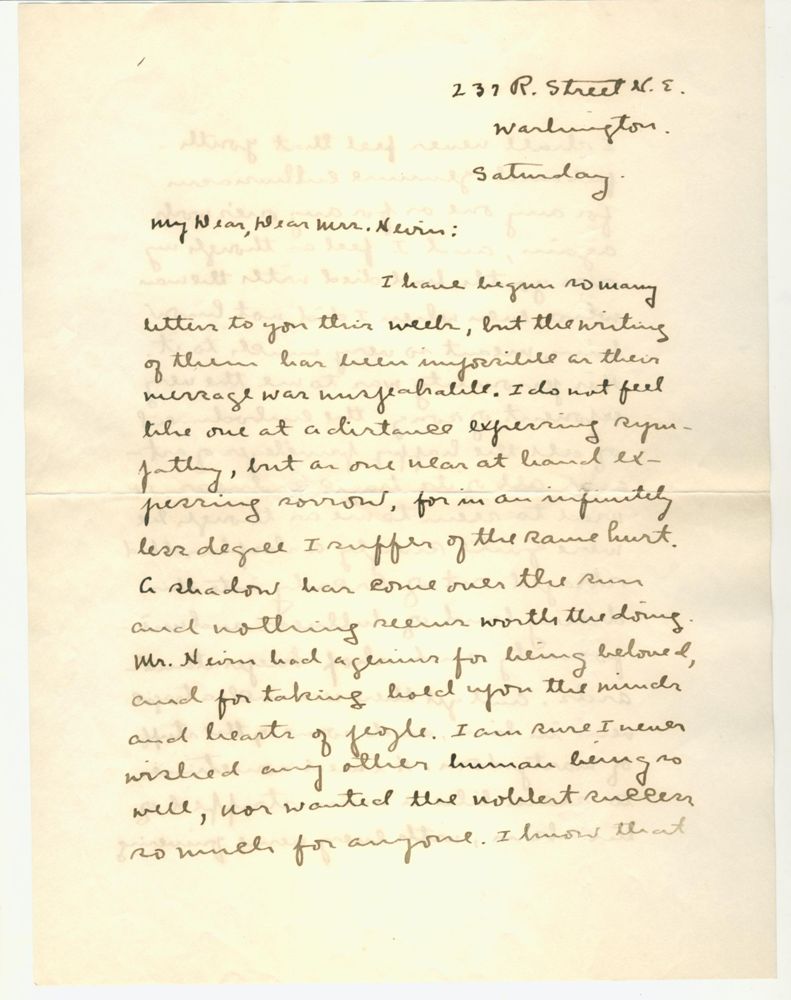 237 R. Street N.E.
Washington.
Saturday.
My Dear, Dear Mrs. Nevin:
I have begun so many
letters to you this week, but the writing
of them has been impossible as their
message was unspeakable. I do not feel
like one at a distance expressing sym-
pathy, but as one near at hand ex-
pressing sorrow, for in an infinitely
less degree I suffer of the same hurt.
A shadow has come over the sun
and nothing seems worth the doing.
Mr. Nevin had a genius for being beloved,
and for taking hold upon the minds
and hearts of people. I am sure I never
wished any other human being so
well, nor wanted the noblest success
so much for anyone. I know that